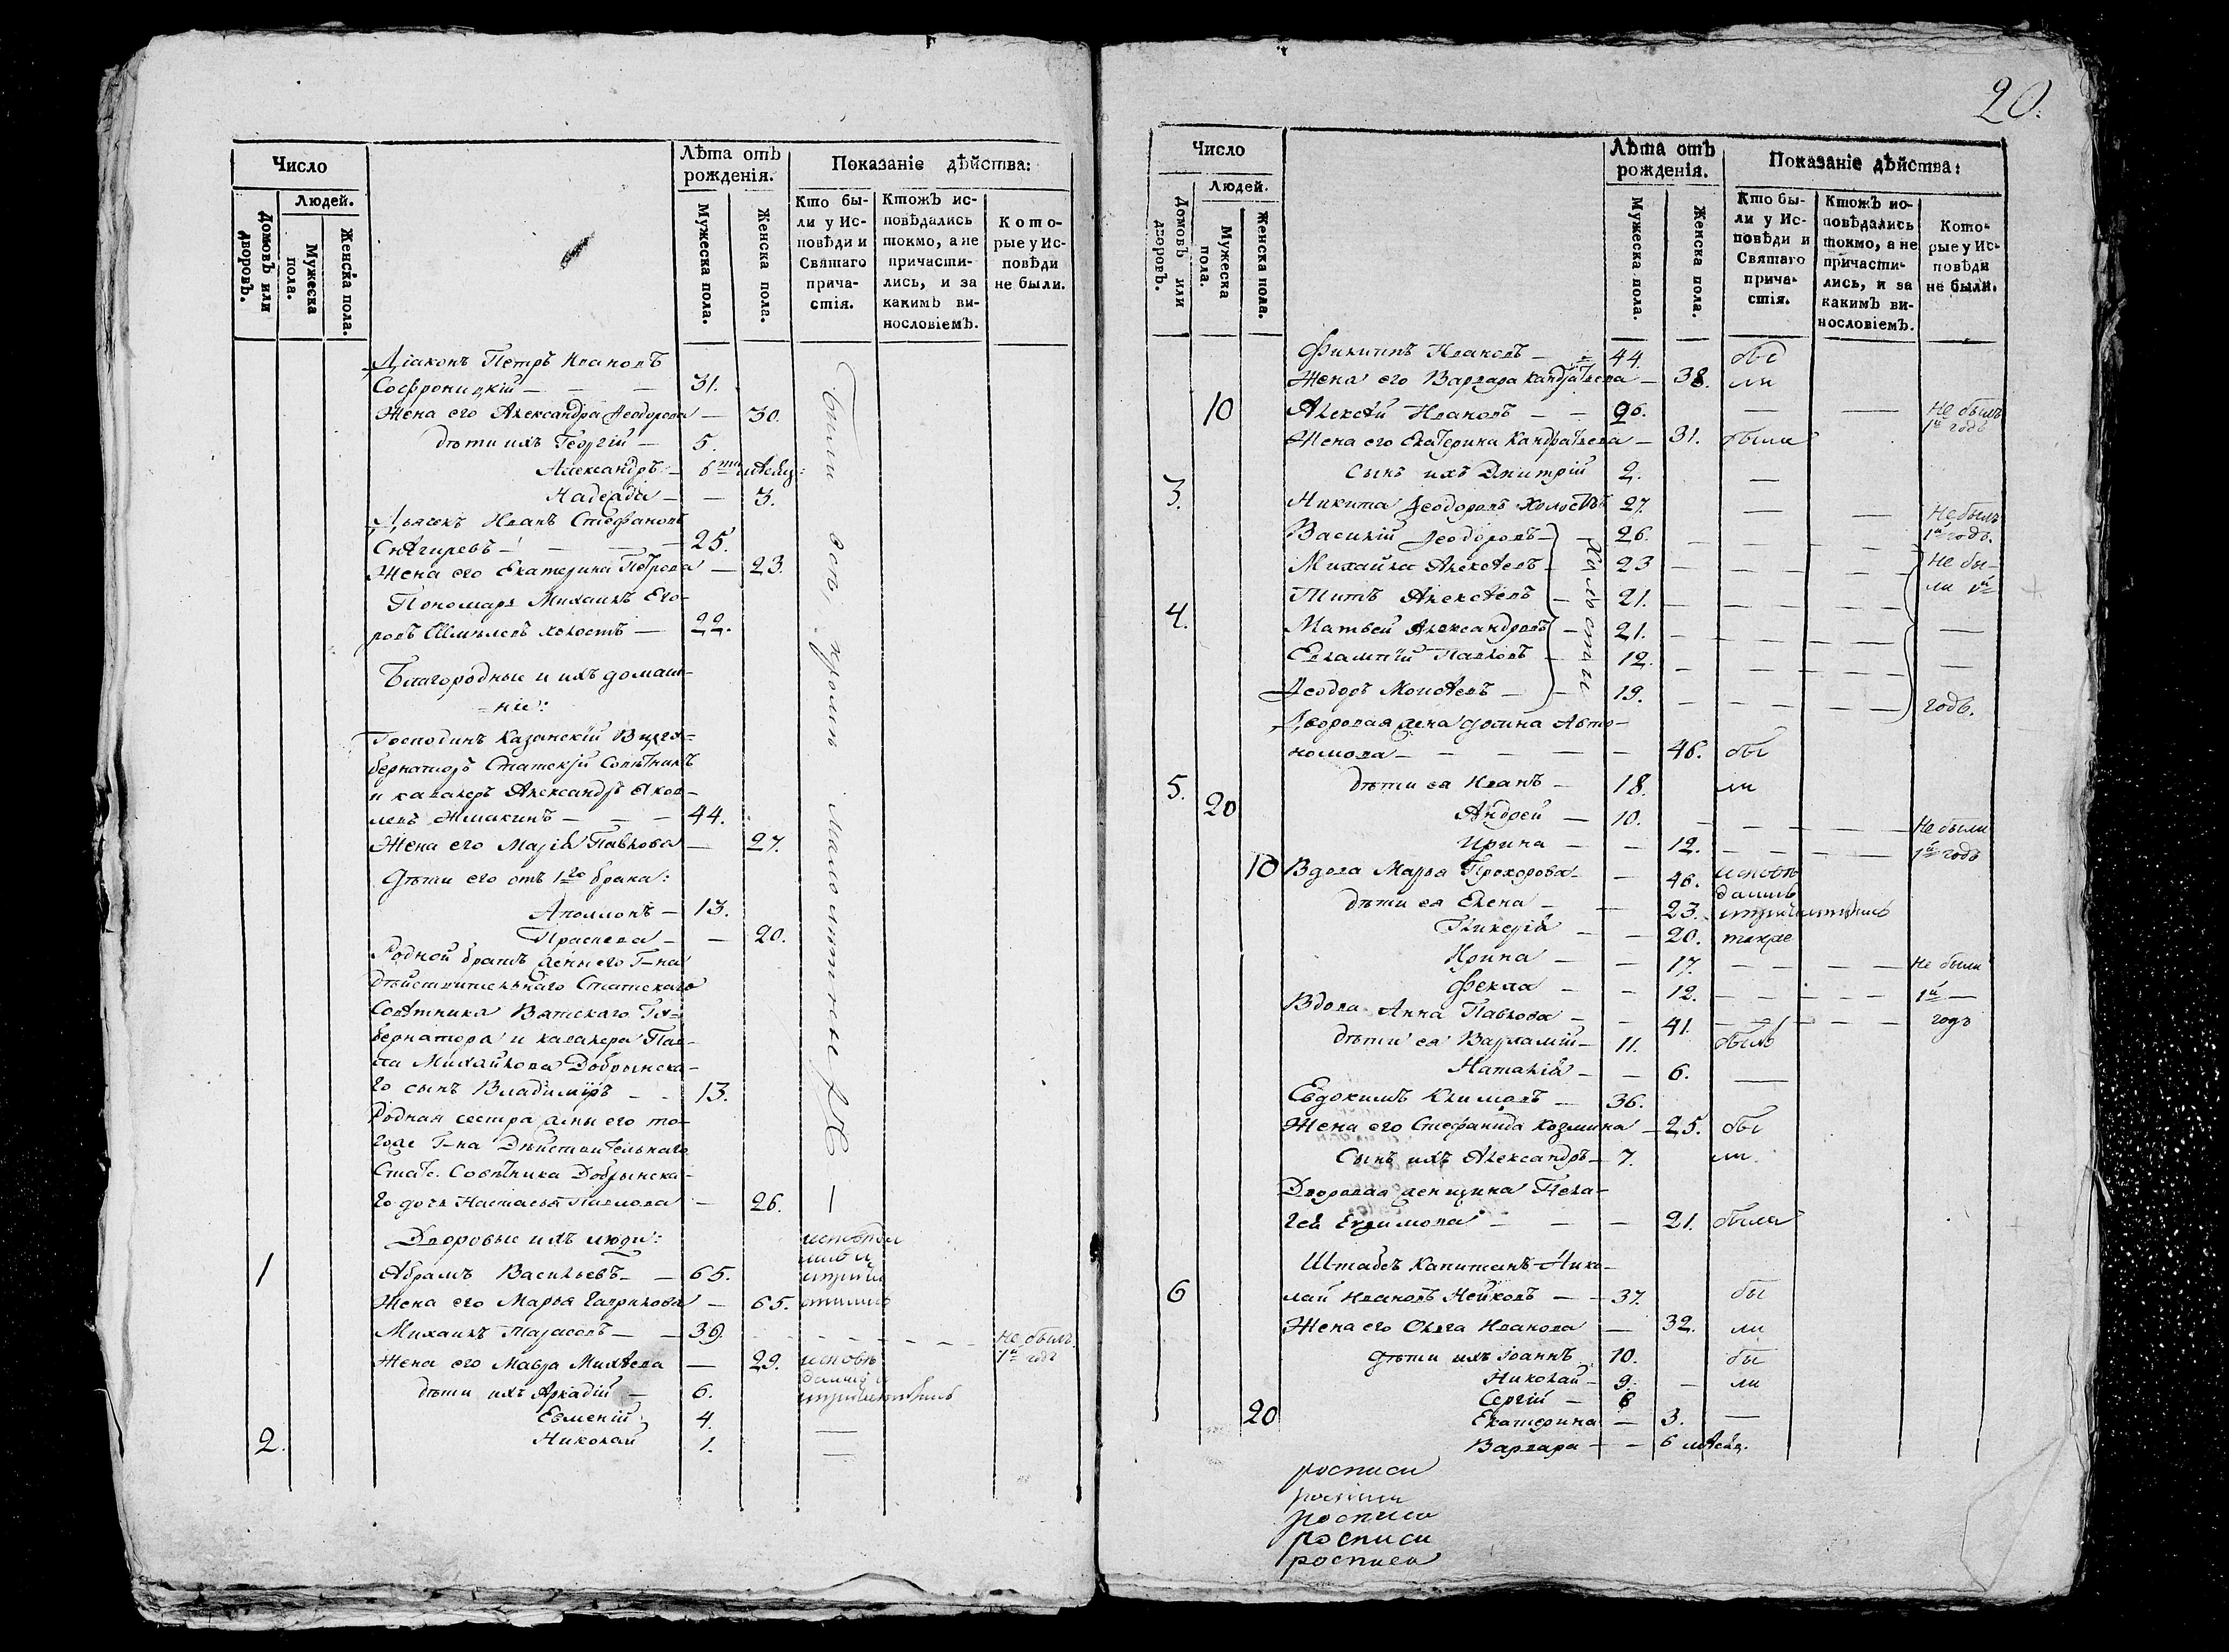 Число
Людей.
Домовъ или дворовъ.
Мужеска пола.
Женска пола.
Лѣта отъ рожденія.
Мужеска пола.
Женска пола.
Показаніе дѣйства:
Кто были у Исповѣди и Святаго причастія.
Ктожъ исповѣдались токмо, а не причастились, и за какимъ винословіемъ.
Которые у Исповѣди не были.
Діаконъ Петръ Ивановъ
Софроницкій — 31.
Жена его Александра Ѳеодорова — 30.
дѣти ихъ Георгій — 5.
Александръ — 6
Надежда — 3.
Дьячекъ Иванъ Стефановъ
Снѣгиревъ — 25.
Жена его Екатерина Петрова — 23.
Пономарь Михаилъ Его-
ровъ холостъ — 22.
Были всѣ, кромѣ малолѣтныхъ —
Благородные и ихъ домаш-
ніе:
Господинъ Казанскій Вицегу-
бернаторъ Статскій Совѣтникъ
и кавалеръ Александръ Яков-
левъ Жмакинъ — 44.
Жена его Марія Павлова — 27.
Дѣти его отъ 1го брака:
Аполлонъ — 13.
Праскева — 20.
Родной братъ жены его Г-на
дѣйствительнаго Статскаго
Совѣтника Вятскаго Гу-
бернатора и кавалера Пав-
ла Михайлова Добрынска-
го сынъ Владиміръ — 13.
Родная сестра жены его то-
гоже Г-на Дѣйствительнаго
Статс. Совѣтника Добрынска-
го дочь Настасья Павлова — 26.
Дворовые ихъ люди:
1 Абрамъ Васильевъ — 65.
Жена его Марья Гаврилова — 65.
Михаилъ Тарасовъ — 39. Не былъ
Жена его Мавра Михѣева — 29. 1й годъ
дѣти ихъ Аркадій — 6.
Евменій 4.
2. Николай 1.
20.
Число
Людей.
Домовъ или дворовъ.
Мужеска пола.
Женска пола.
Лѣта отъ рожденія.
Мужеска пола.
Женска пола.
Показаніе дѣйства:
Кто были у Исповѣди и Святаго причастія.
Ктожъ исповѣдались токмо, а не причастились, и за какимъ винословіемъ.
Которые у Исповѣди не были.
Филиппъ Ивановъ — 44. бы
Жена его Варвара Кандратьева — 38. ли
10 Алексѣй Ивановъ — 26. — — Не былъ 1й годъ
Жена его Екатерина Кандратьева — 31. была
сынъ ихъ Дмитрій 2. —
3. Никита Ѳеодоровъ холостъ 27. — — Не былъ 1й годъ.
Василій Ѳеодоровъ — 26.
Михайла Алексѣевъ — 23 Не бы-
Титъ Алексѣевъ — 21. ли 1й
4. Матвей Александровъ — 21. —
Евлампій Павловъ — 12. —
Ѳеодоръ Моисѣевъ — 19. годъ.
Холосты
Дворовая жена Авто-
номова — 46. бы
5. дѣти ея Иванъ — 18. ли
20 Андрей — 10. Не были
Ирина — 12. 1й годъ
10 Вдова Марья Прохорова — 46.
дѣти ея Елена — 23.
Гликерія — 20. также
Ирина — 17. Не были
Фекла — 12. 1й —
Вдова Анна Павлова — 41. годъ
дѣти ея Варламій — 11. былъ
Наталія — 6. —
Евдокимъ Климовъ — 36.
Жена его Стефанида Козмина — 25. бы
Сынъ ихъ Александръ — 7. ли.
Дворовая женщина Пела-
гея — 21. была
Штабсъ Капитанъ Нико-
6 лай Ивановъ Нейковъ — 37. бы
Жена его Ольга Иванова — 32. ли
Дѣти ихъ Іоаннъ 10. бы
Николай — 9. — ли
Сергій — 8
20 Екатерина — 3. —
Варвара — 6 мѣсяц.
росписи
росписи
росписи
росписи
росписи